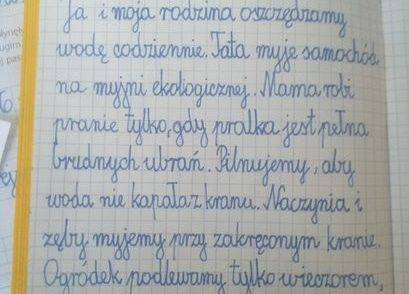 Ja i moja rodzina oszczędzamy
wodę codziennie. Tata myje samochód
na myjni ekologicznej. Mama robi
pranie tylko, gdy pralka jest pełna
brudnych ubrań. Pilnujemy, aby
woda nie kapała z kranu. Naczynia i
zęby myjemy przy zakręconym kranie.
Ogródek podlewamy tylko wieczorem,